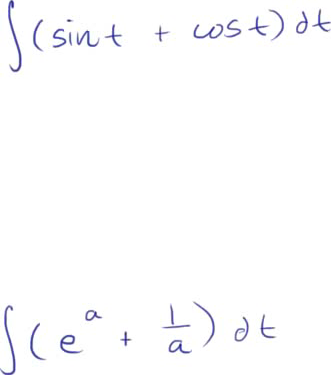 ∫(sint + cost) dt
∫(e^a + 1/a) dt